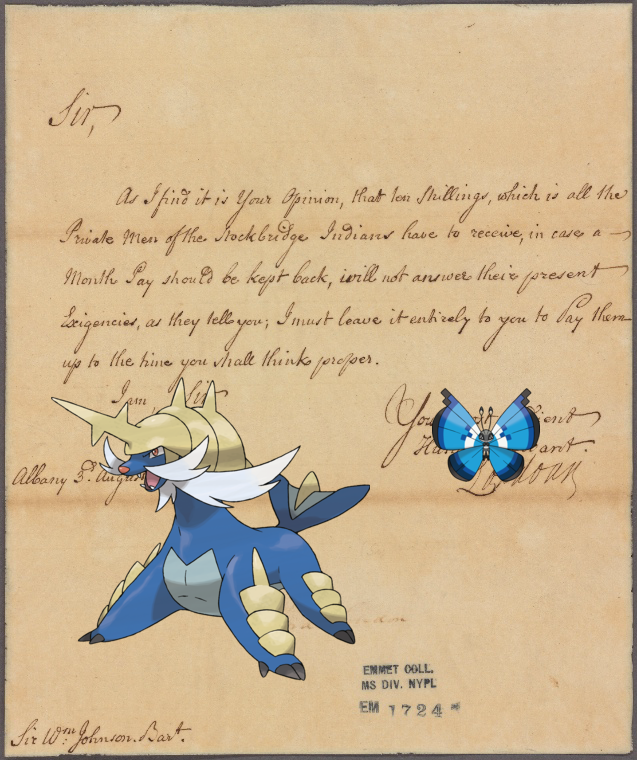 Sir,
As I find it is Your Opinion, that ten Shillings, which is all the
Private Men of the Stockbridge Indians have to receive, in case a
Month Pay should be kept back, will not answer their present
Exigencies, as they tell you; I must leave it entirely to you to Pay them
up to the time you shall think proper.
I am, Sir
You
Albany 3d August
EMMET COLL.
MS DIV. NYPL
EM 1724
Sir Wm Johnson Bart.